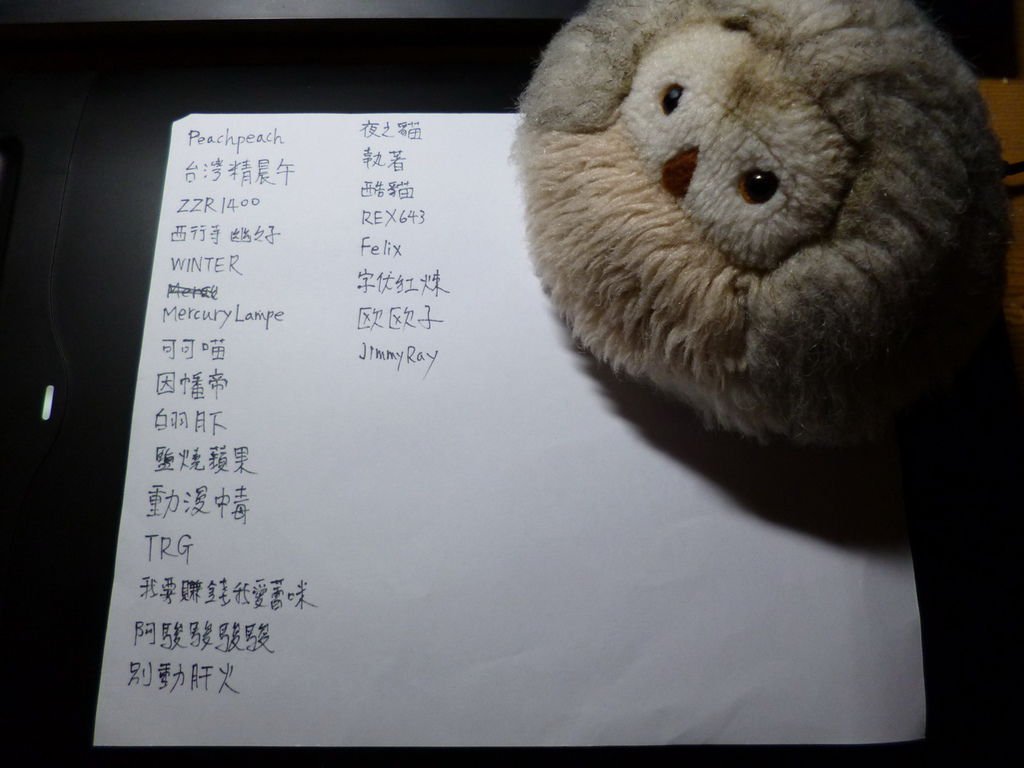 Peachpeach
台灣精晨午
ZZR1400
西行寺幽幽子
WINTER
MercuryLampe
可可喵
因幡帝
白羽月下
鹽燒蘋果
動漫中毒
TRG
我要賺錢我愛蕾咪
阿駿駿駿駿
別動肝火
夜之貓
執著
酷貓
REX643
Felix
字伏紅煉
欧欧子
JimmyRay